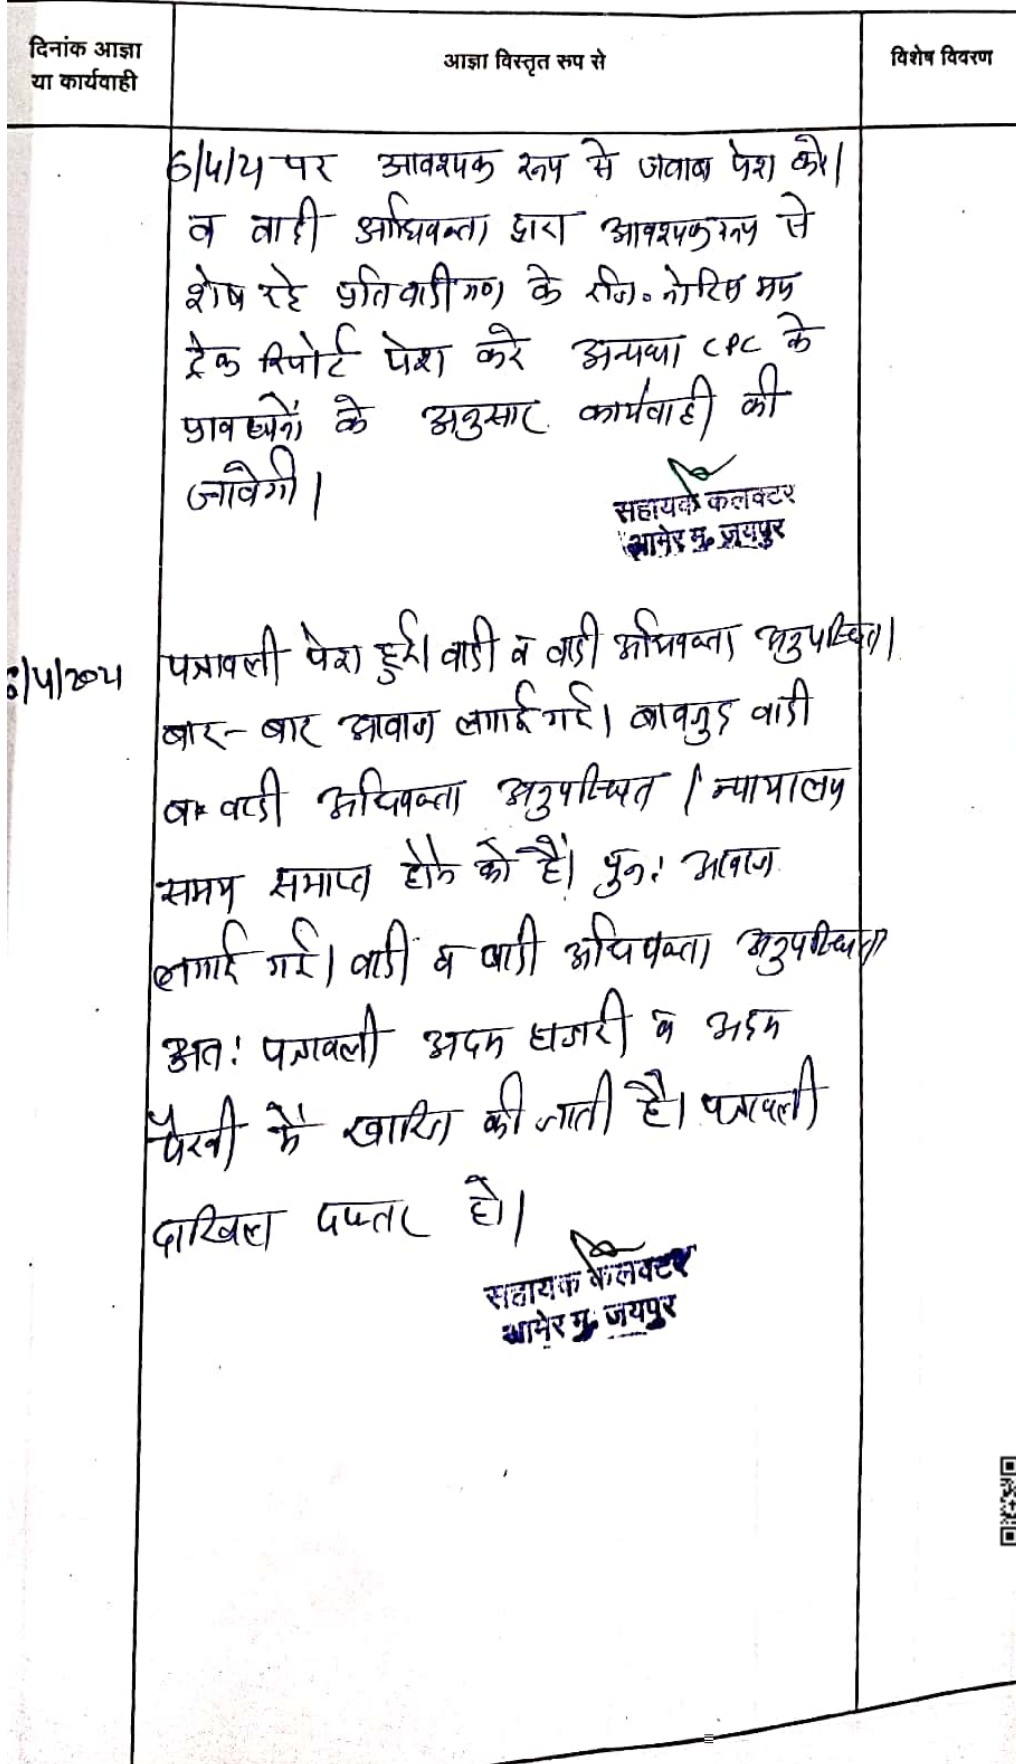 दिनांक आज्ञा
या कार्यवाही
आज्ञा विस्तृत रुप से
विशेष विवरण
पर आवश्यक रूप से जवाब पेश करे।
व वादी अधिवक्ता द्वारा आवश्यक रूप से
शेष रहे प्रतिवादीगण के रजि. नोटिस मय
ट्रेक रिपोर्ट पेश करे अन्यथा CPC के
प्रावधानों के अनुसार कार्यवाही की
जावेगी।
सहायक कलक्टर
आमेर मु. जयपुर
पत्रावली पेश हुई। वादी व वादी अधिवक्ता अनुपस्थित।
बार-बार आवाज लगाई गई। बावजुद वादी
व वादी अधिवक्ता अनुपस्थित। न्यायालय
समय समाप्त होने को है। पुन: आवाज
लगाई गई। वादी व वादी अधिवक्ता अनुपस्थित
अत: पत्रावली अदम हाजरी व अदम
पैरवी में खारिज की जाती है। पत्रावली
दाखिल दफ्तर हो।
सहायक कलक्टर
आमेर मु. जयपुर